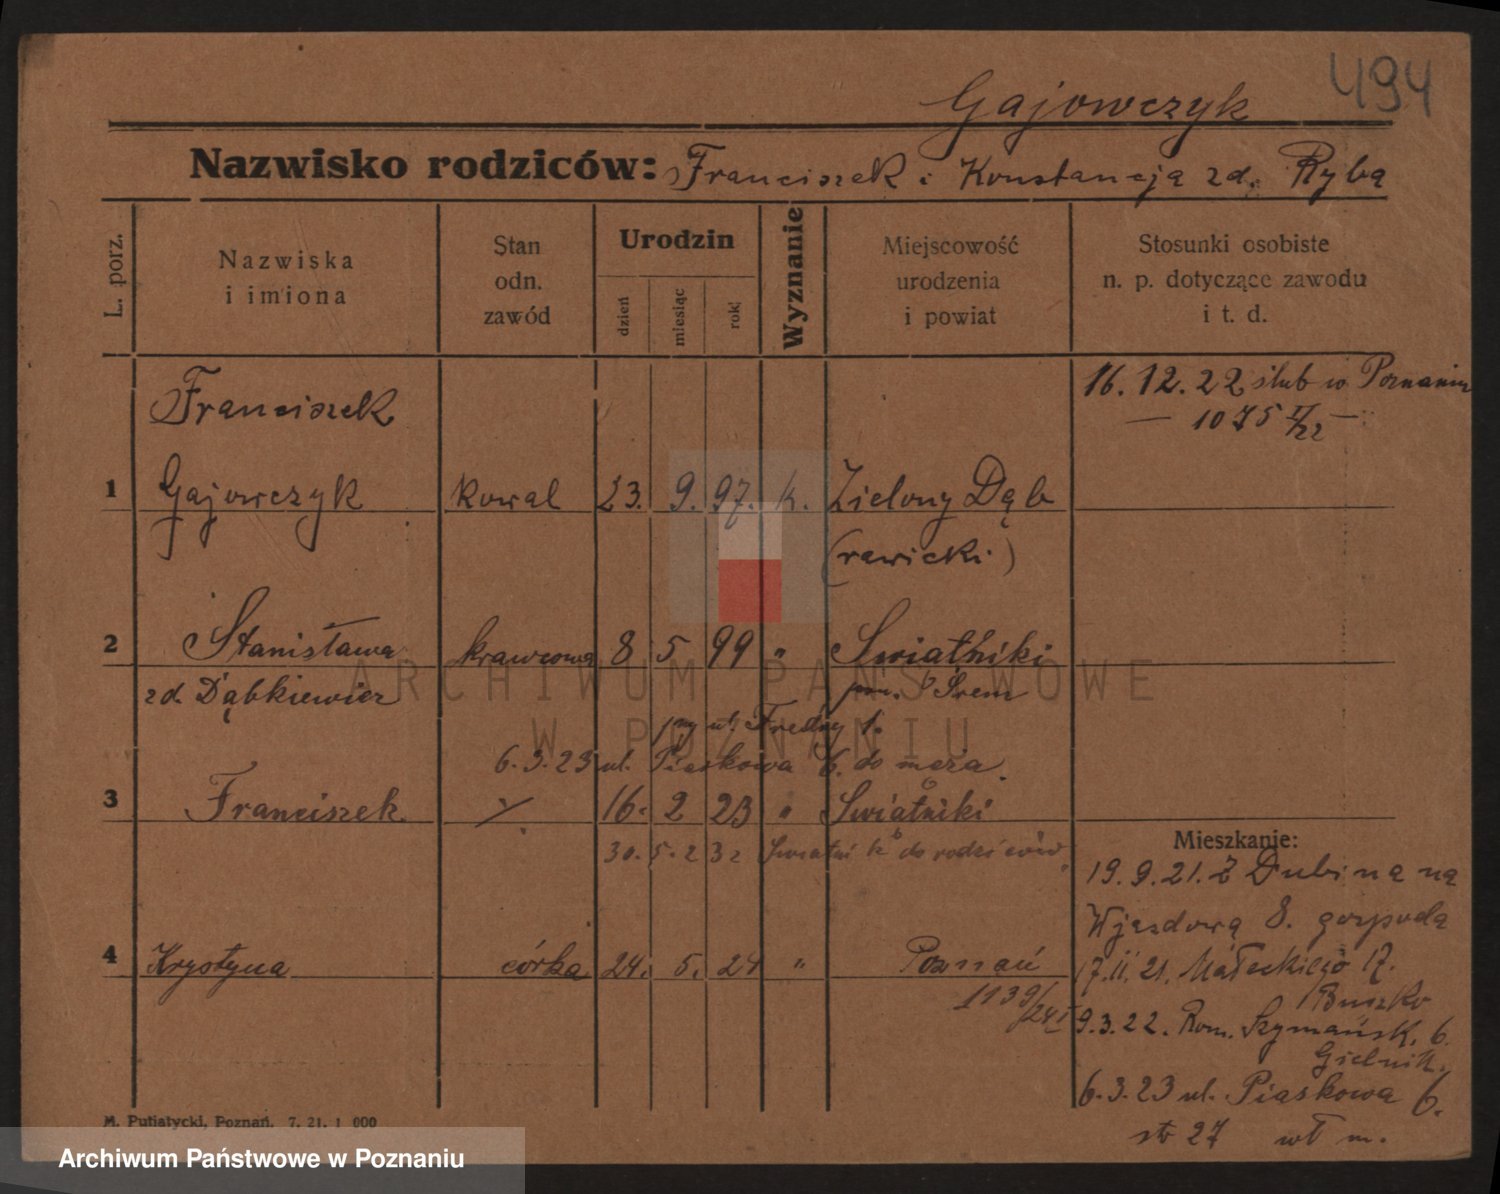 494
Gajowczyk
Nazwisko rodziców: Franciszek i Konstancją zd. Rybą
L. porz.
Nazwiska
i imiona
Stan
odn.
zawód
Urodzin
dzień
miesiąc
rok
Wyznanie
Miejscowość
urodzenia
i powiat
Stosunki osobiste
n. p. dotyczące zawodu
i t. d.
16. 12. 22 ślub w Poznaniu
— 1075 —
Franciszek
1 Gajowczyk kowal 23. 9. 97. k. Zielony Dąb
(rawicki)
2 Stanisława krawcowa 8 5 99 " Swiatniki
zd. Dąbkiewicz Srem
ul. Fredry 1.
6. 3. 23 ul. Piaskowa 6. do męża.
3 Franciszek 16. 2 23 " Swiatniki
30. 5. 23 z do rodziców
Mieszkanie:
19. 9. 21. z Dubina na
Wjazdową 8. gospoda
4 Krystyna córka 24. 5. 24 " Poznań
1139/24 I
17. 11. 21. Małeckiego 17.
Buszko
9. 3. 22. Rom. Szymańsk. 6.
Gielnik.
6. 3. 23 ul. Piaskowa 6.
str 27 wł m.
M. Putiatycki, Poznań. 7. 21. 1 000
ARCHIWUM PAŃSTWOWE
W POZNANIU
Archiwum Państwowe w Poznaniu